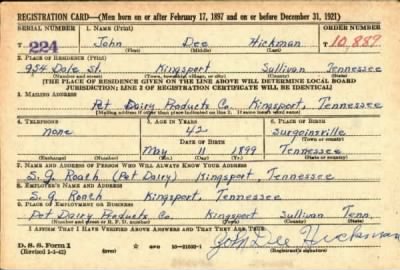 REGISTRATION CARD—(Men born on or after February 17, 1897 and on or before December 31, 1921)
SERIAL NUMBER 1. NAME (Print) ORDER NUMBER
T 224 John Dee Hickman T 10,889
(First) (Middle) (Last)
2. PLACE OF RESIDENCE (Print)
954 Dale St. Kingsport Sullivan Tennessee
(Number and street) (Town, township, village, or city) (County) (State)
[THE PLACE OF RESIDENCE GIVEN ON THE LINE ABOVE WILL DETERMINE LOCAL BOARD
JURISDICTION; LINE 2 OF REGISTRATION CERTIFICATE WILL BE IDENTICAL]
3. MAILING ADDRESS
Pet Dairy Products Co. Kingsport, Tennessee
[Mailing address if other than place indicated on line 2. If same insert word same]
4. TELEPHONE 5. AGE IN YEARS 6. PLACE OF BIRTH
none 42 Surgoinsville
DATE OF BIRTH (Town or county)
May 11 1899 Tennessee
(Exchange) (Number) (Mo.) (Day) (Yr.) (State or country)
7. NAME AND ADDRESS OF PERSON WHO WILL ALWAYS KNOW YOUR ADDRESS
S. G. Roach (Pet Dairy) Kingsport, Tennessee
8. EMPLOYER'S NAME AND ADDRESS
S. G. Roach Kingsport, Tennessee
9. PLACE OF EMPLOYMENT OR BUSINESS
Pet Dairy Products Co. Kingsport Sullivan Tenn.
(Number and street or R. F. D. number) (Town) (County) (State)
I AFFIRM THAT I HAVE VERIFIED ABOVE ANSWERS AND THAT THEY ARE TRUE.
D. S. S. Form 1
(Revised 1-1-42) (over) 16—21630-1 John Dee Hickman